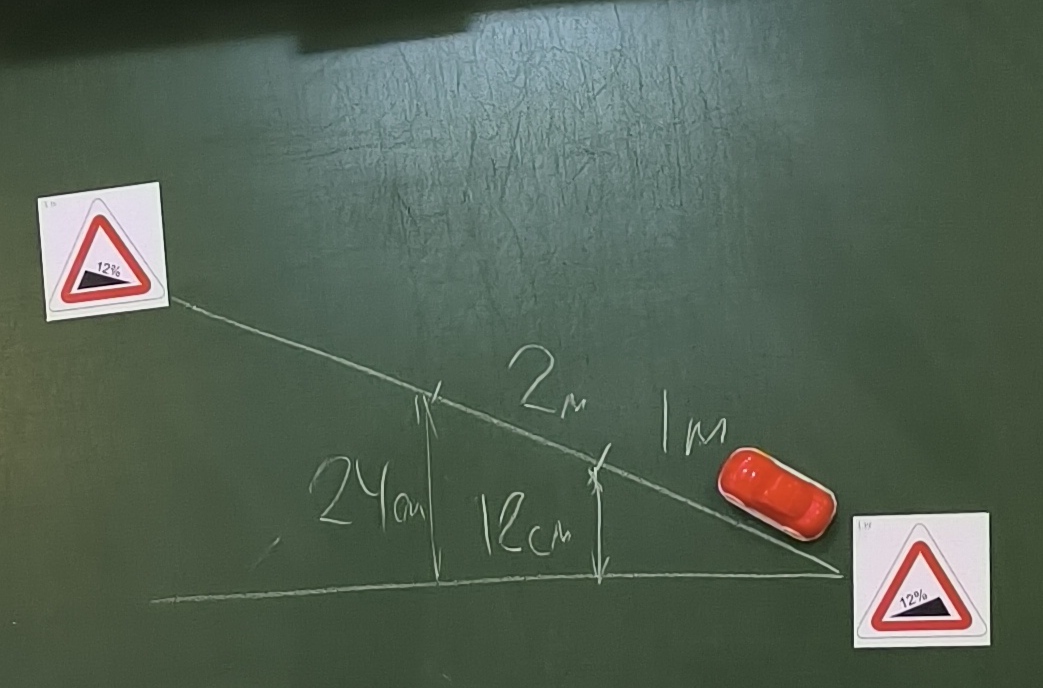 12%
2м
1м
24см
12см
12%